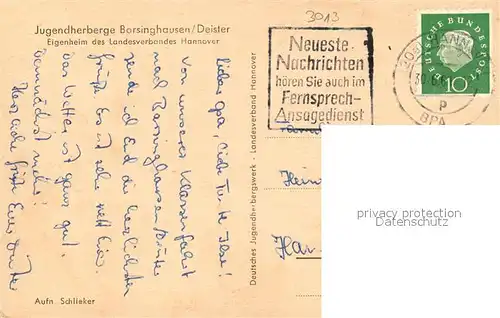 3013
Jugendherberge Borsinghausen/Deister
Eigenheim des Landesverbandes Hannover
Neueste
Nachrichten
hören Sie auch im
Fernsprech-
Ansagedienst
DEUTSCHE BUNDESPOST
10
30
p
BPA
Lieber Opa, liebe Tante Ilse!
Von unserer Klassenfahrt
nach Barsinghausen/Deister
send ich Euch die herzlichsten
Grüße. Es ist sehr nett hier.
Das Wetter ist ganz gut.
Demnächst mehr!
Herzliche Grüße Eure
Deutsches Jugendherbergswerk - Landesverband Hannover
Familie
Hein
Han
Aufn. Schlieker
privacy protection
Datenschutz